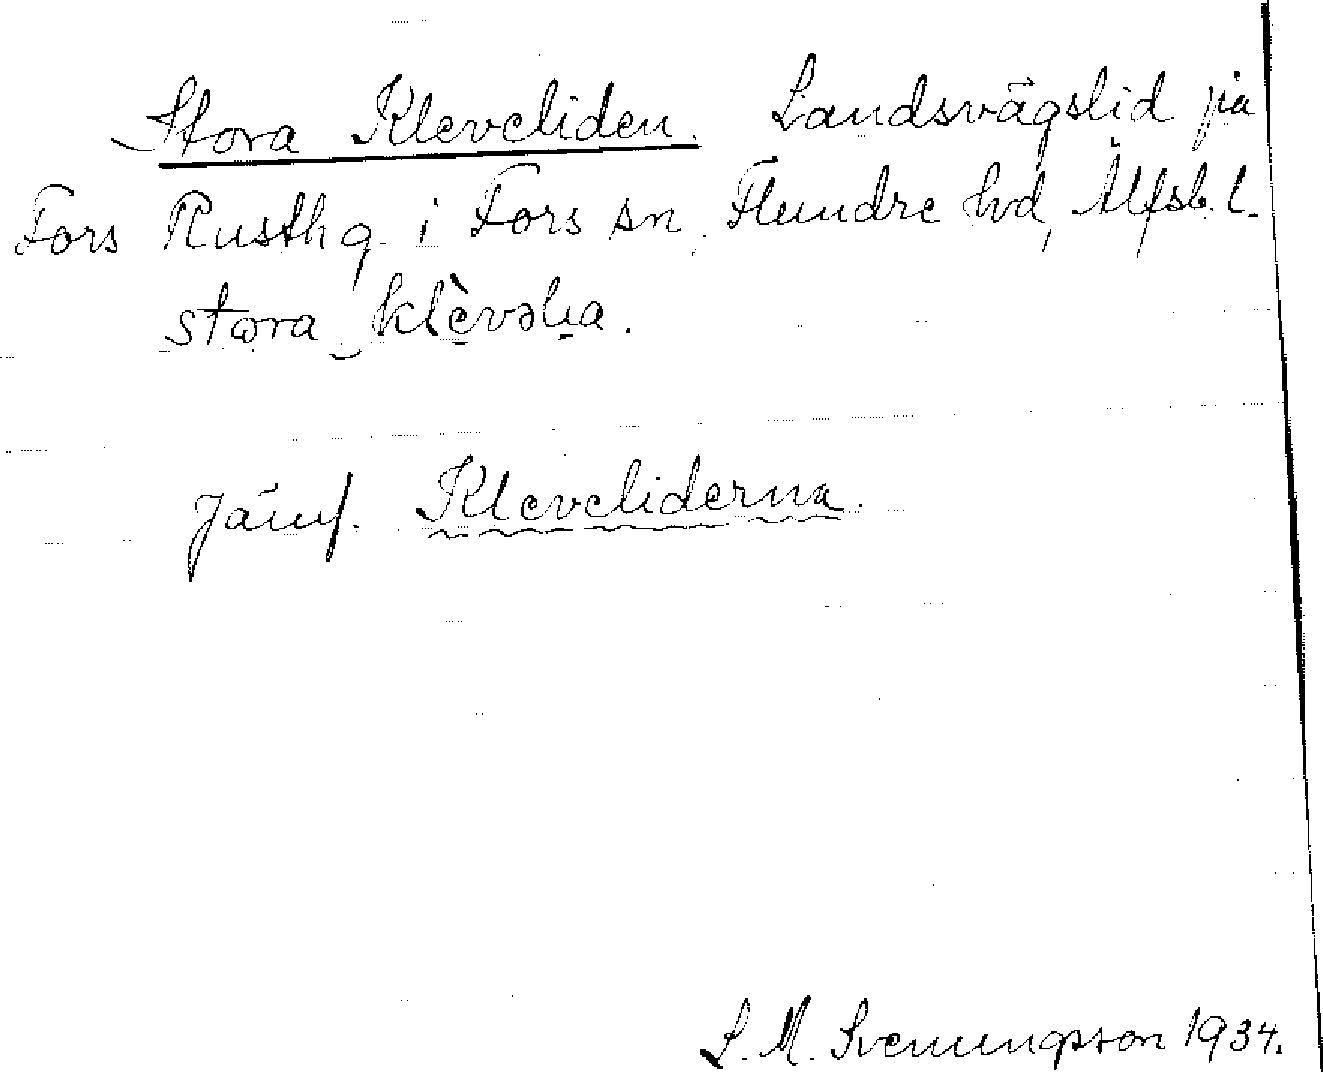 Stora Kleveliden. Landsvägslid på
Fors Rusthg. i Fors sn, Flundre hd, Älfsb. l.
stora klèvəlia.
Jämf. Kleveliderna.
S. M. Svenungsson 1934.